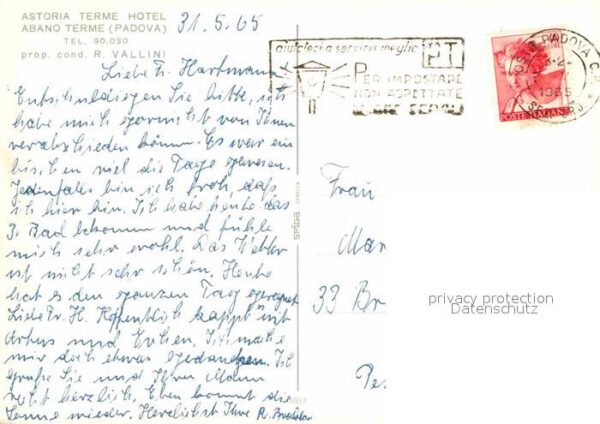 ASTORIA TERME HOTEL
ABANO TERME (PADOVA)
TEL. 90.030
prop. cond. R. VALLINI
31.5.65
Liebe Fr. Hartmann!
Entschuldigen Sie bitte, ich
habe mich garnicht von Ihnen
verabschieden können. Es war ein
bisschen viel die Tage gewesen.
Jedenfalls bin ich froh, daß
ich hier bin. Ich habe heute das
3. Bad bekommen und fühle
mich sehr wohl. Das Wetter
ist nicht sehr schön. Heute
hat es den ganzen Tag geregnet
Liebe Fr. H. Hoffentlich klappt mit
und Evchen. Ich mache
mir doch etwas Gedanken. Ich
grüße Sie und Ihren Mann
recht herzlich. Eben kommt die
Sonne wieder. Herzlichst Ihre R.
aiutateci a servirvi meglio PT
PER IMPOSTARE
NON ASPETTATE
LE ORE SERALI
PADOVA
1965
POSTE ITALIANE
Frau
Mar
33 Br
privacy protection
Datenschutz